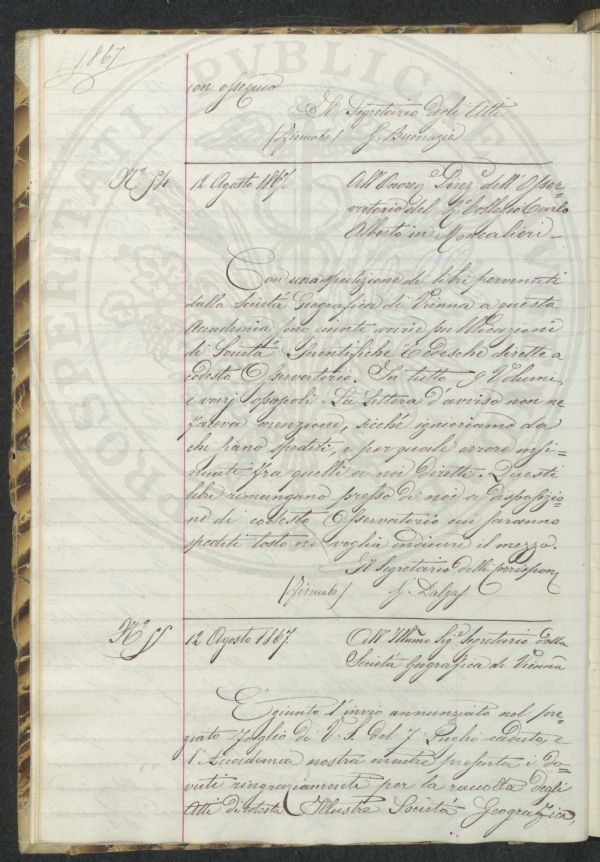 1867
con ossequio
Il Segretario degli Atti
(Firmato) G. Buonazia
N.º 54 12 Agosto 1867. All' Onorev. Direz.e dell' Osser=
vatorio del R.º Collegio Carlo
Alberto in Moncalieri –
Con una spedizione di libri pervenuti
dalla Società Geografica di Vienna a questa
Accademia sono venute varie pubblicazioni
di Società Scientifiche Tedesche dirette a
codesto Osservatorio. In tutto 9 Volumi,
e varj opuscoli. La lettera d'avviso non ne
faceva menzione, sicché ignoriamo da
chi siano spediti, e per quale errore insi=
nuati fra quelli a noi diretti. Questi
libri rimangano presso di noi a disposizio=
ne di codesto Osservatorio cui saranno
spediti tosto ne voglia indicare il mezzo.
Il Segretario delle Corrispon.
(Firmato) G. Dalgas
N.º 55 12 Agosto 1867. All' Illmo Sig.r Segretario della
Società Geografica di Vienna
È giunto l'invio annunziato nel pre=
giato foglio di V. S. del 7 Luglio caduto, e
l'Accademia nostra mentre presenta i do=
vuti ringraziamenti per la raccolta degli
Atti di codesta Illustre Società Geografica,
PROSPERITATI PUBLICAE